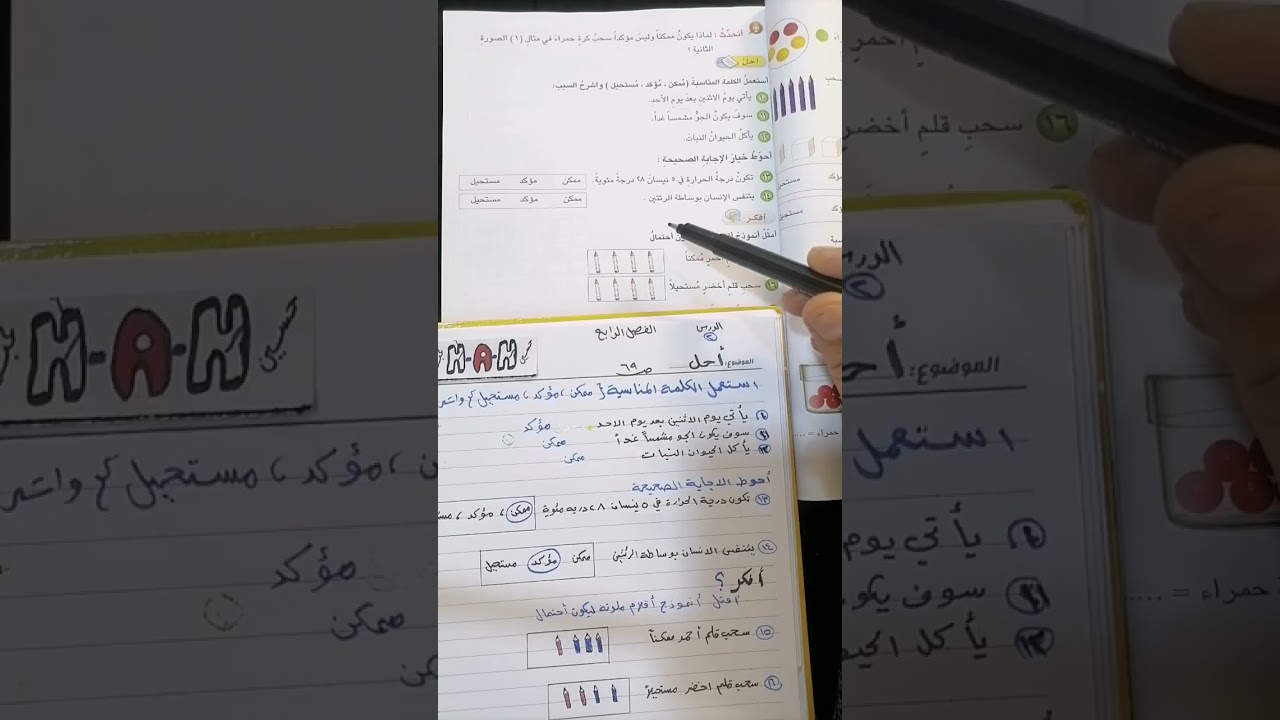 أتحدّثُ : لماذا يكونُ ممكناً وليسَ مؤكداً سحبُ كرةٍ حمراءَ في مثالِ (١) الصورةِ
الثانيةِ ؟
أحلّ
أستعملُ الكلمةَ المناسبةَ ( مُمكن ، مُؤكد ، مُستحيل ) واشرحُ السببَ:
١٠ يأتي يومُ الاثنينِ بعدَ يومِ الأحدِ.
١١ سوفَ يكونُ الجوُّ مشمساً غداً.
١٢ يأكلُ الحيوانُ النباتَ.
أحوّطُ خيارَ الإجابةِ الصحيحةِ :
١٣ تكونُ درجةُ الحرارةِ في ٥ نيسانَ ٢٨ درجةً مئويةً. ممكن مؤكد مستحيل
١٤ يتنفسُ الإنسان بوساطةِ الرئتينِ . ممكن مؤكد مستحيل
أفكر
أمثّلُ أنموذجَ أحتمالُ
أحمرٍ مُمكناً
١٦ سحبِ قلمٍ أخضرٍ مُستحيلاً
الدرس ٢ الفصل الرابع
الموضوع: أحل ص ٦٩
استعمل الكلمة المناسبة { ممكن ، مؤكد ، مستحيل } واشر
يأتي يوم الاثنين بعد يوم الاحد مؤكد
١١ سوف يكون الجو مشمساً غداً ممكن
١٢ يأكل الحيوان النبات ممكن
أحوط الاجابة الصحيحة
١٣ تكون درجة الحرارة في ٥ نيسان ٢٨ درجه مئوية ممكن ، مؤكد ،
١٤ يتنفس الانسان بوساطة الرئتين ممكن مؤكد مستحيل
أفكر ؟
امثل أنموذج أقلام ملونه ليكون أحتمال
١٥ سحب قلم أحمر ممكناً
١٦ سحب قلم اخضر مستحيلاً
H-A-N
حسين